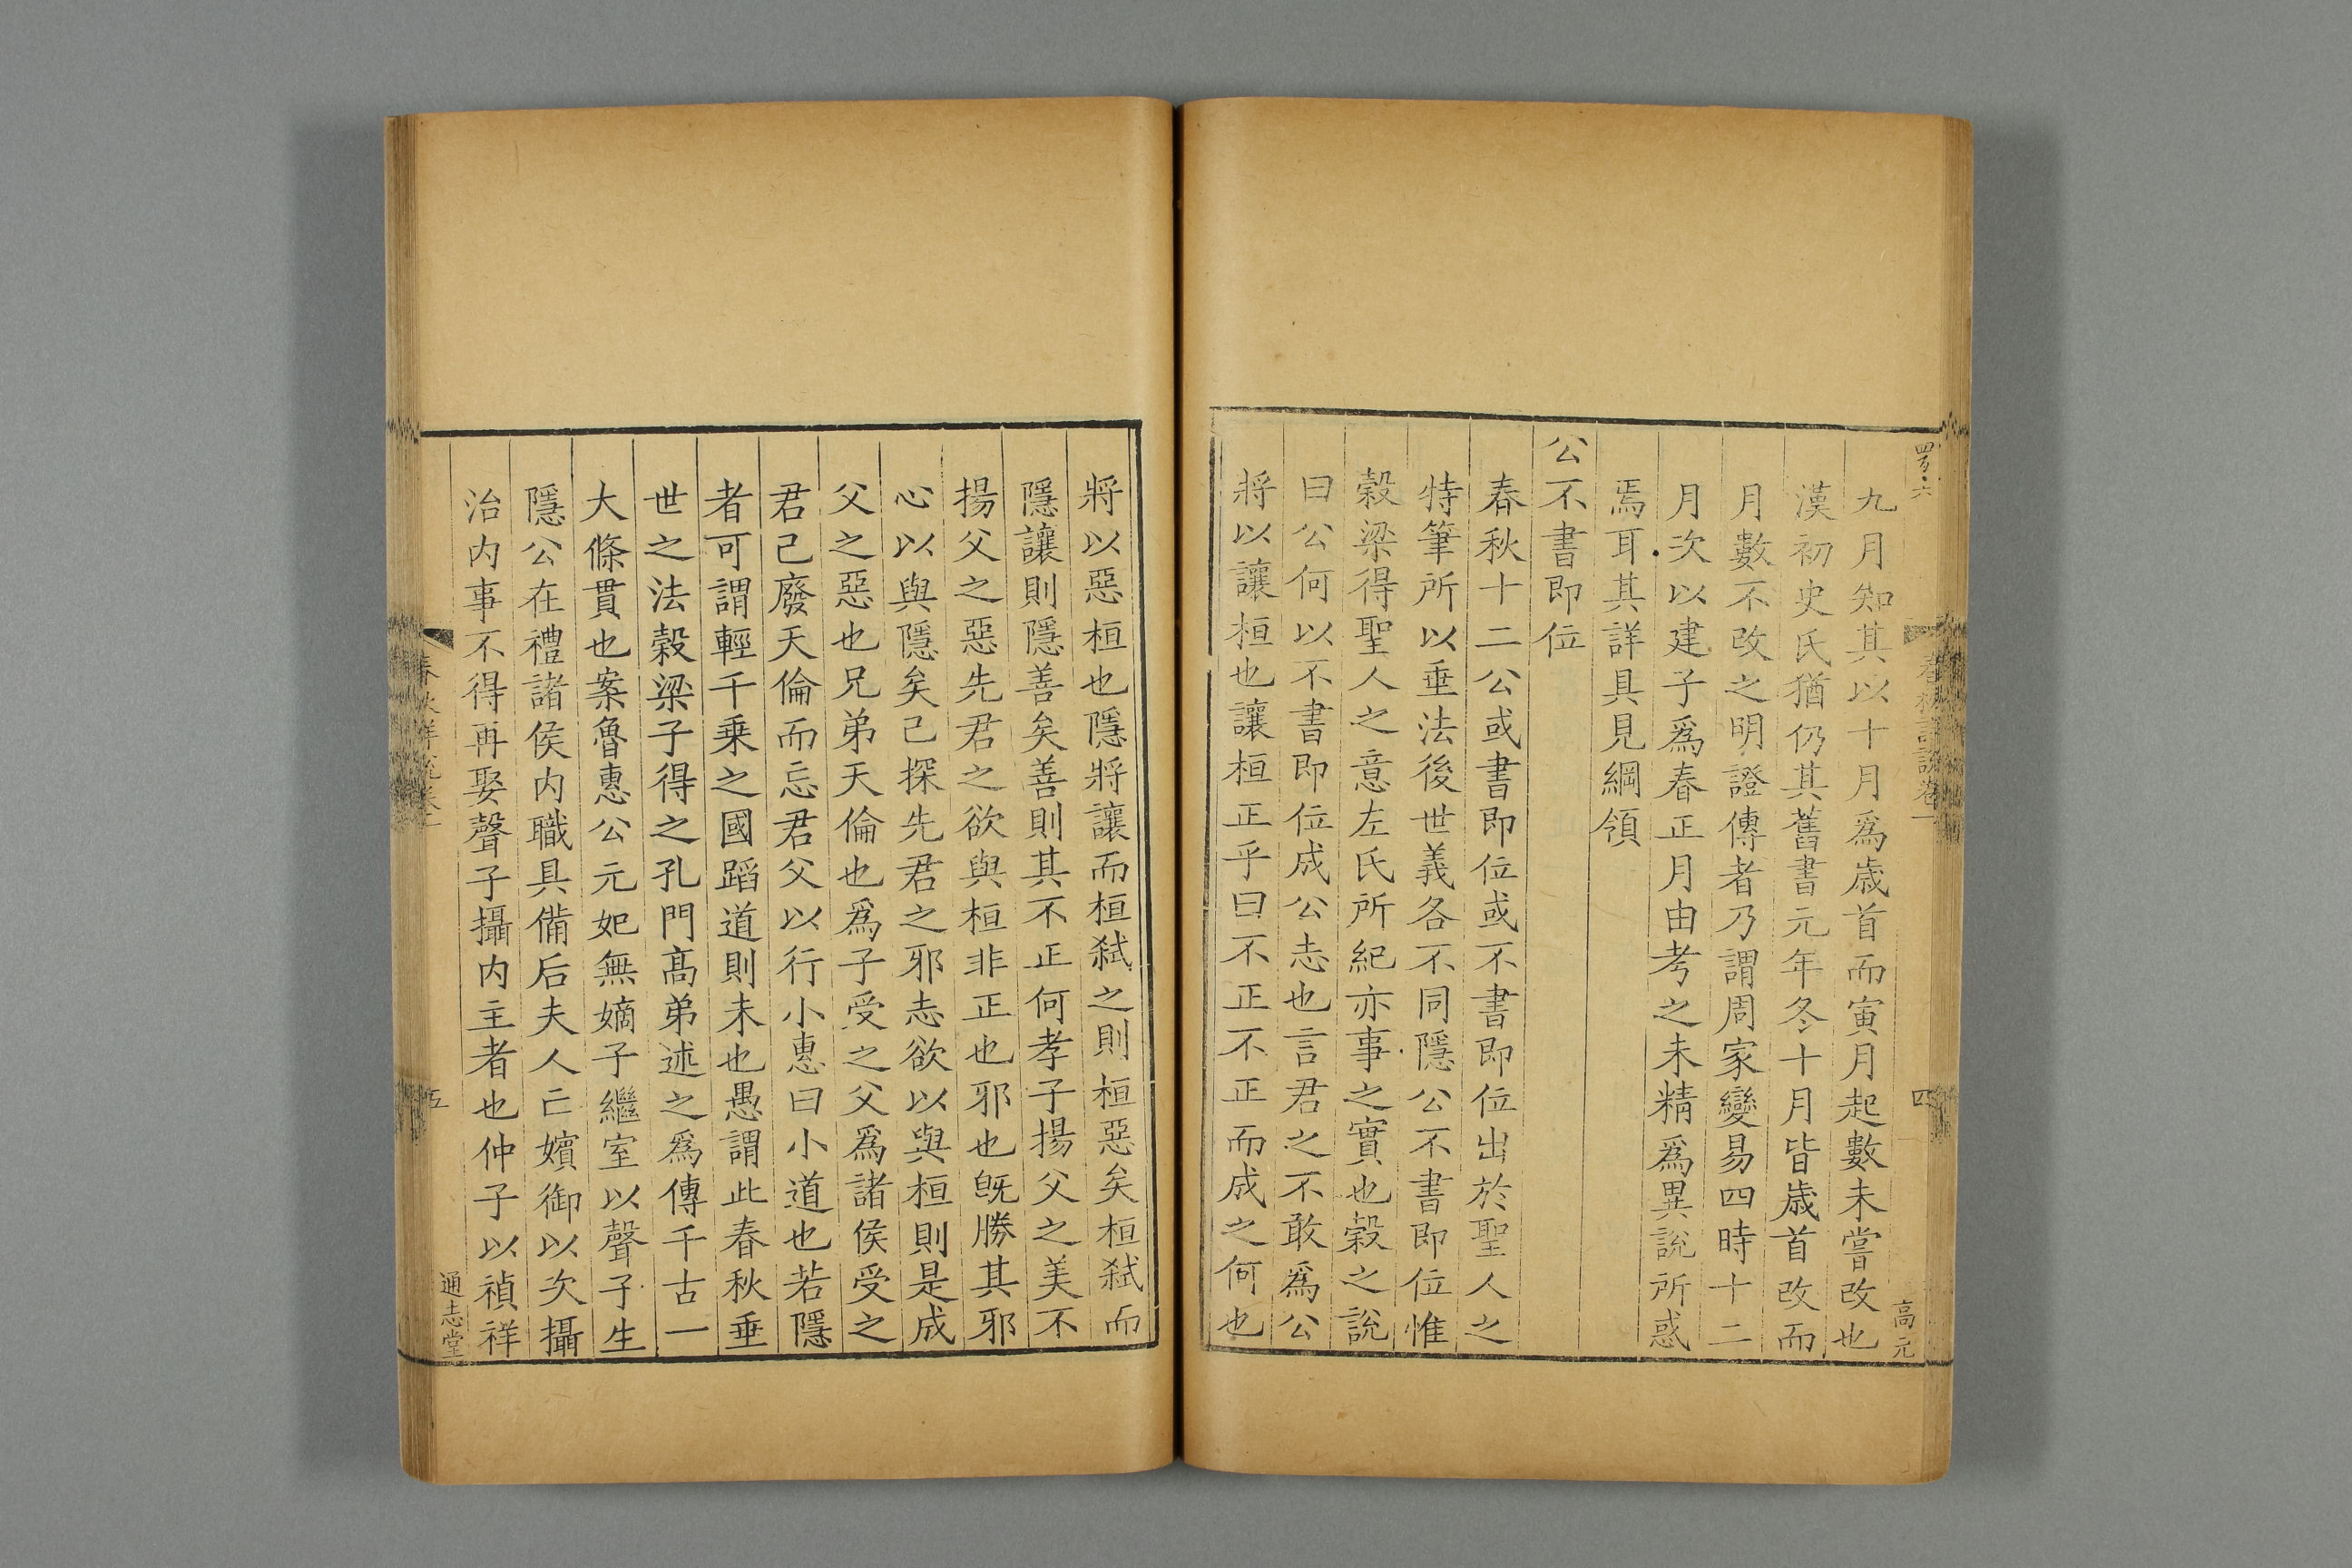 九月知其以十月爲歲首而寅月起數未嘗改也
漢初史氏猶仍其舊書元年冬十月皆歲首改而
月數不改之明證傳者乃謂周家變易四時十二
月次以建子爲春正月由考之未精爲異說所惑
焉耳其詳具見綱領
公不書即位
春秋十二公或書即位或不書即位出於聖人之
特筆所以垂法後世義各不同隱公不書即位惟
穀梁得聖人之意左氏所紀亦事之實也穀之說
曰公何以不書即位成公志也言君之不敢爲公
將以讓桓也讓桓正乎曰不正不正而成之何也
春秋詳說卷一
四
高元
將以惡桓也隱將讓而桓弑之則桓惡矣桓弑而
隱讓則隱善矣善則其不正何孝子揚父之美不
揚父之惡先君之欲與桓非正也邪也旣勝其邪
心以與隱矣己探先君之邪志欲以與桓則是成
父之惡也兄弟天倫也爲子受之父爲諸侯受之
君己廢天倫而忘君父以行小惠曰小道也若隱
者可謂輕千乗之國蹈道則未也愚謂此春秋垂
世之法穀梁子得之孔門髙弟述之爲傳千古一
大條貫也案魯惠公元妃無嫡子繼室以聲子生
隱公在禮諸侯内職具備后夫人亡嬪御以次攝
治内事不得再娶聲子攝内主者也仲子以禎祥
春秋詳說卷一
五
通志堂